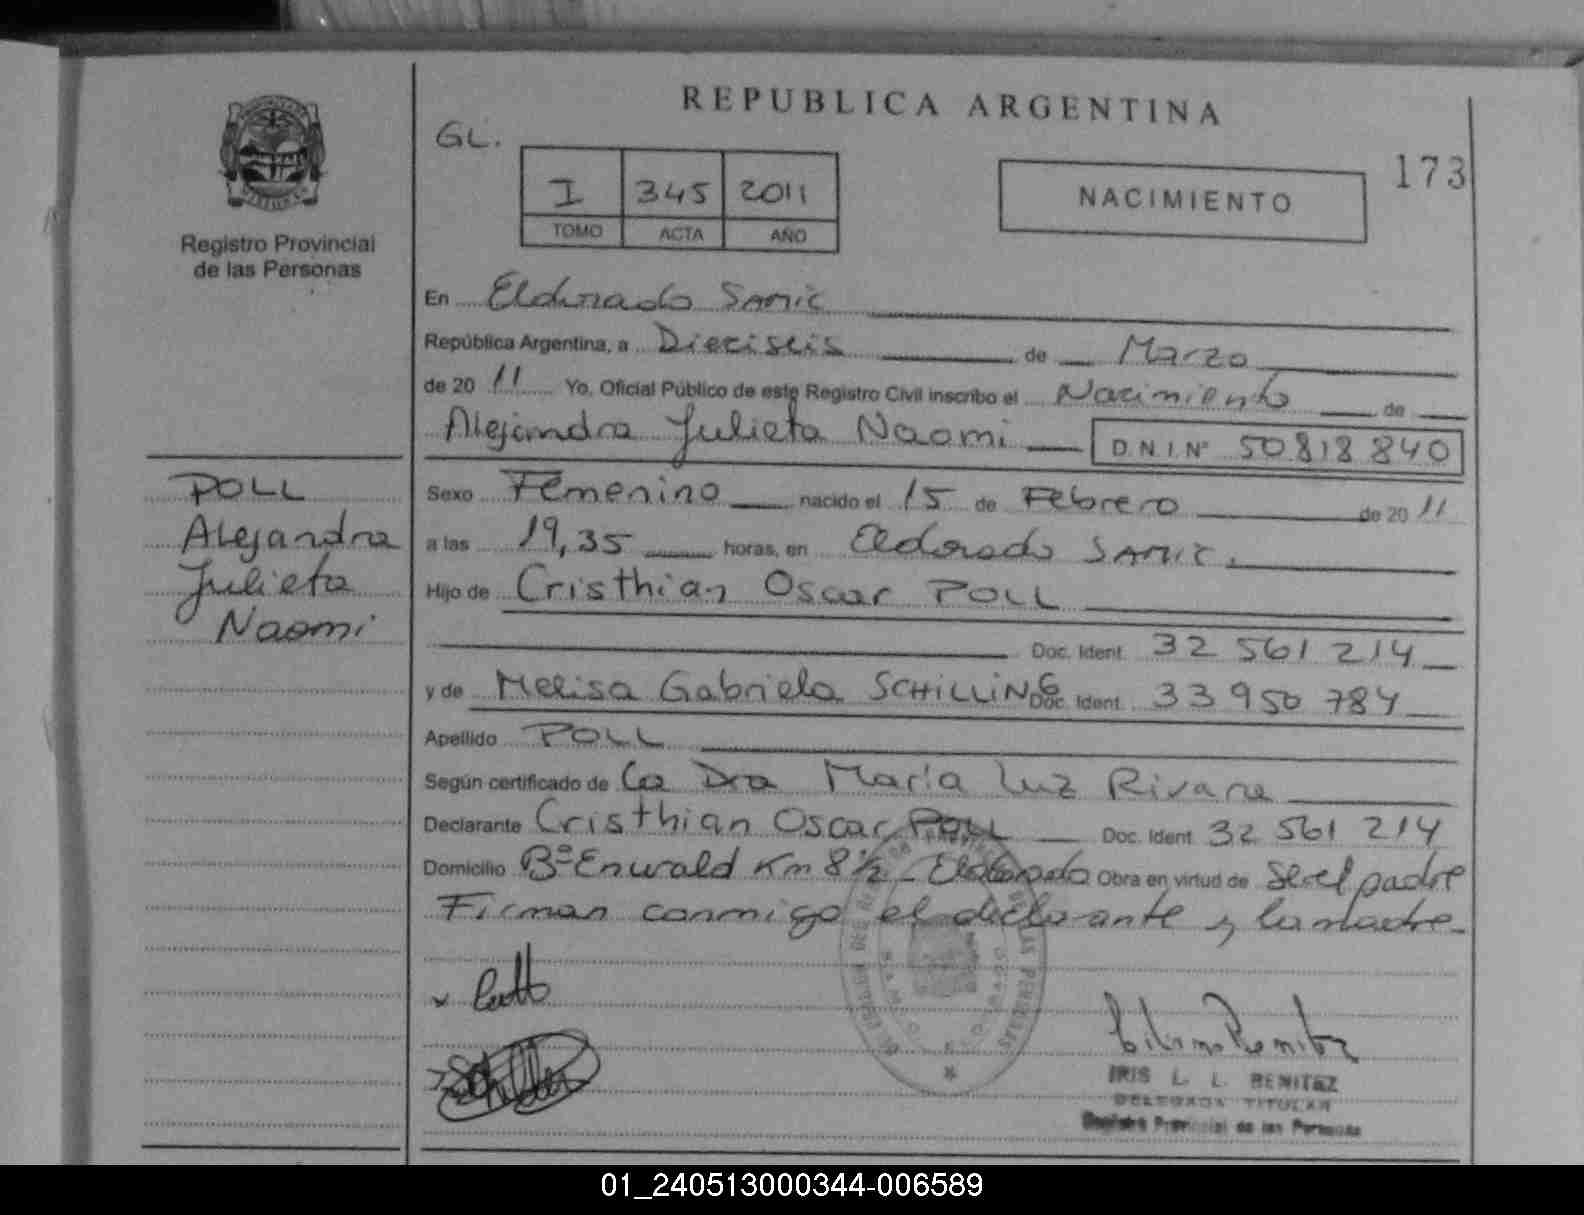 REPUBLICA ARGENTINA
GL.
I 345 2011
TOMO ACTA AÑO
NACIMIENTO
173
Registro Provincial
de las Personas
En Eldorado SAMIC
República Argentina, a Dieciseis de Marzo
de 20 11 Yo, Oficial Público de este Registro Civil inscribo el Nacimiento de
Alejandra Julieta Naomi D.N.I.Nº 50818840
POLL
Alejandra
Julieta
Naomi
Sexo Femenino nacido el 15 de Febrero de 20 11
a las 19,35 horas, en Eldorado SAMIC.
Hijo de Cristhian Oscar POLL
Doc. Ident. 32 561 214
y de Melisa Gabriela SCHILLING Doc. Ident. 33 950 784
Apellido POLL
Según certificado de La Dra María Luz Rivara
Declarante Cristhian Oscar POLL Doc. Ident. 32 561 214
Domicilio Bº Enwald Km 8½ - Eldorado Obra en virtud de Ser el padre
Firman conmigo el declarante y la madre.
IRIS L. L. BENITEZ
DELEGADA TITULAR
Registro Provincial de las Personas
01_240513000344-006589